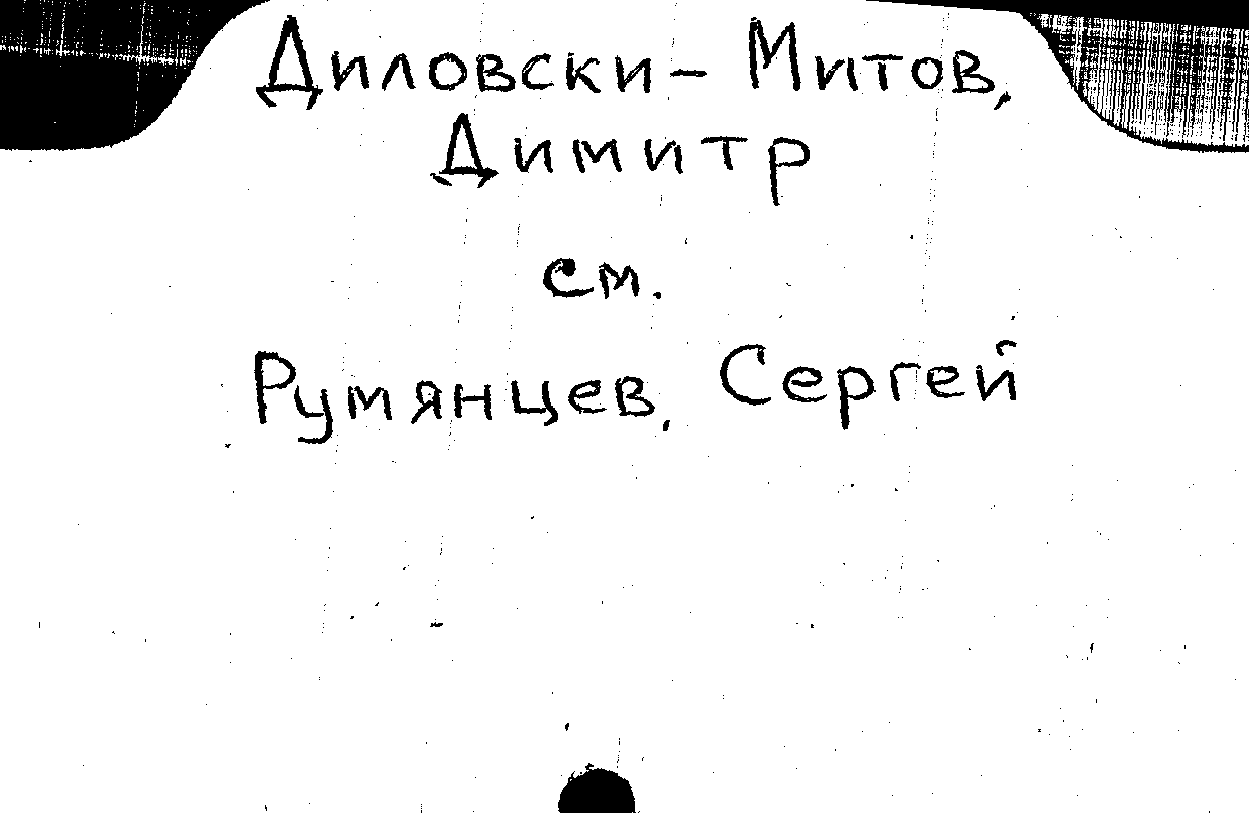 Диловски - Митов,
Димитр
см.
Румянцев, Сергей